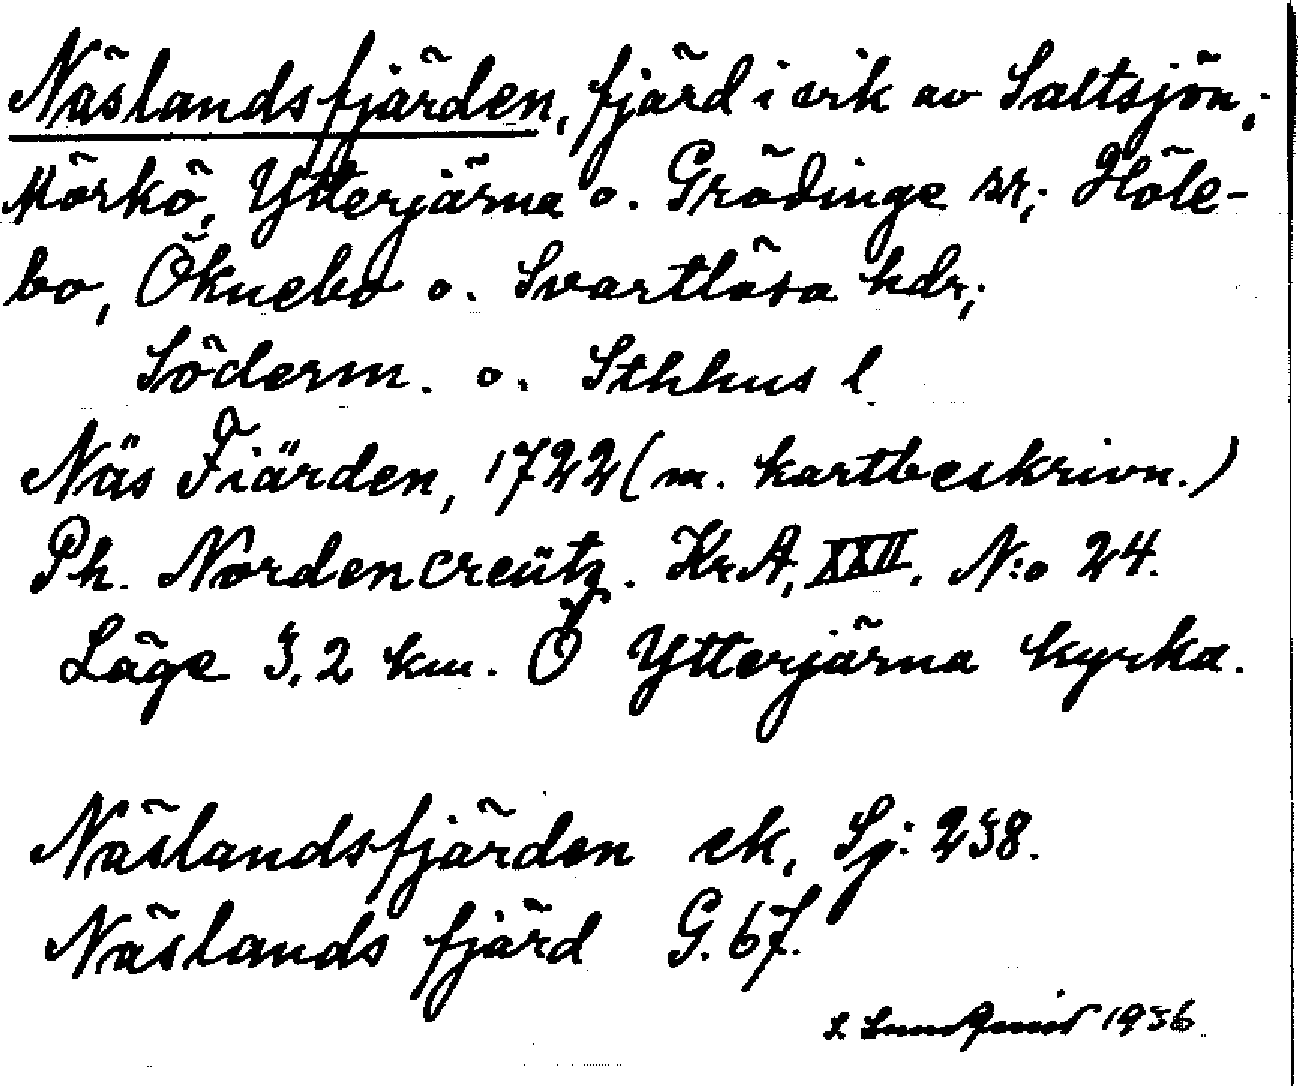 Näslandsfjärden, fjärd i vik av Saltsjön;
Mörkö, Ytterjärna o. Grödinge sr; Höle-
bo, Öknebo o. Svartlösa hdr;
Söderm. o. Sthlms l
Näs Fiärden, 1722 (m. kartbeskrivn.)
Ph. Nordencreütz. Kr.A, XXII. N:o 24.
Läge 3,2 km. Ö Ytterjärna kyrka.
Näslandsfjärden ek, Sj: 238.
Näslands fjärd G. 67.
S. Lundqvist 1936